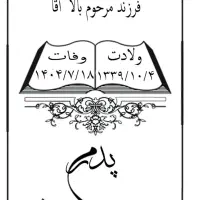 فرزند مرحوم بالا آقا
ولادت وفات
۱۳۳۹/۱۰/۴ ۱۴۰۴/۷/۱۸
پدرم